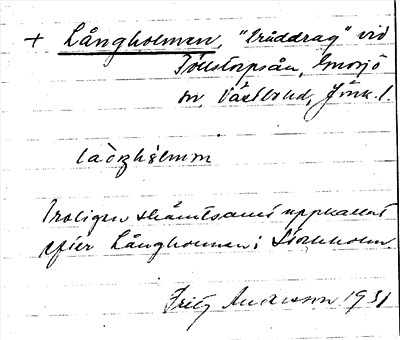 + Långholmen, "tråddrag" vid
Töllstorpsån, Gnosjö
sn, Västbo hd, Jönk. l.
Troligen skämtsamt uppkallat
efter Långholmen i Stockholm.
Fritz Andersson 1931